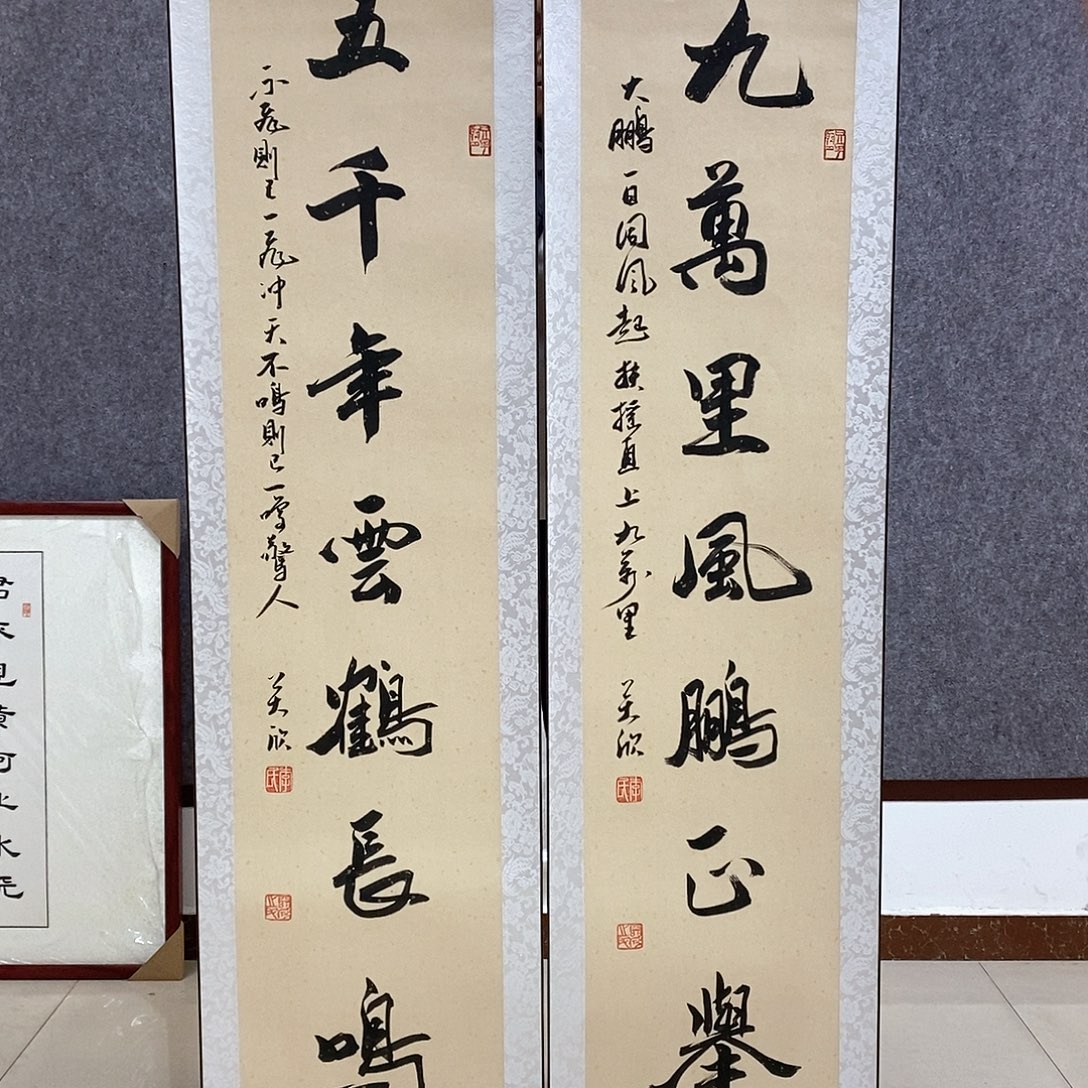 九萬里風鵬正舉
大鵬一日同風起扶搖直上九萬里
美欣
五千年雲鶴長鳴
不飛則已一飛冲天不鳴則已一鳴驚人
美欣
君不見黄河之水天